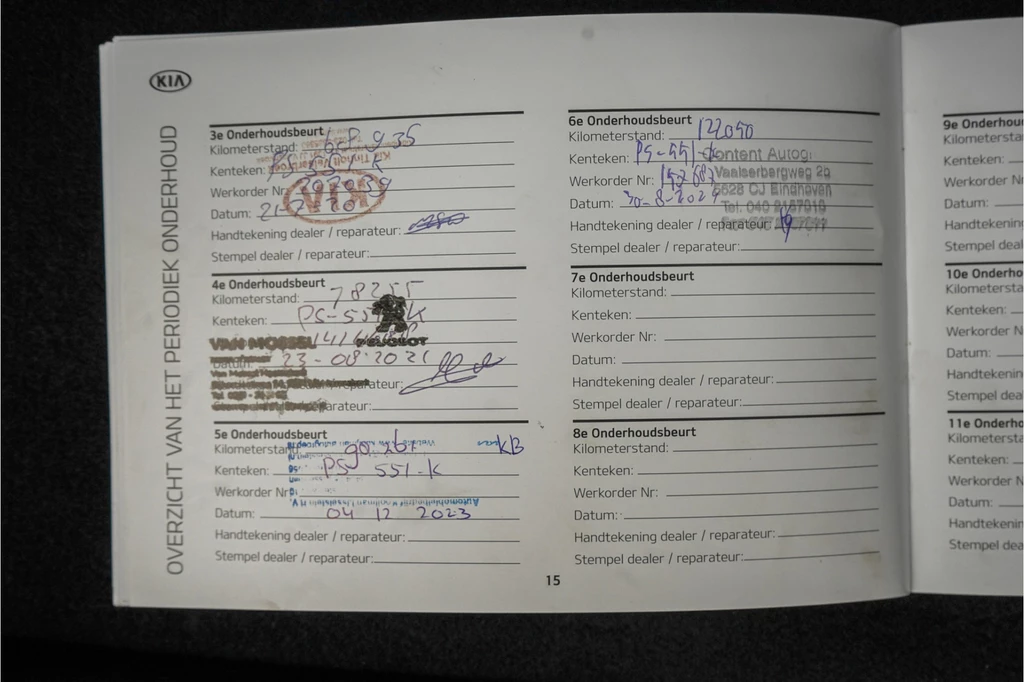 KIA
OVERZICHT VAN HET PERIODIEK ONDERHOUD
3e Onderhoudsbeurt
Kilometerstand:
Kenteken: PS-551-K
Werkorder Nr:
KIA
Datum:
Handtekening dealer / reparateur:
Stempel dealer / reparateur:
4e Onderhoudsbeurt
Kilometerstand: 78255
Kenteken: PS-551-K
VAN MOSSEL
PEUGEOT
Datum: 23-08-2021
reparateur:
reparateur:
5e Onderhoudsbeurt
Kilometerstand
KB
Kenteken: PS 551-K
Werkorder Nr:
Datum: 04 12 2023
Handtekening dealer / reparateur:
Stempel dealer / reparateur:
6e Onderhoudsbeurt
Kilometerstand: 122050
Kenteken: PS-551-K
Content Autogr
Werkorder Nr:
Vaalserbergweg
5628 CJ Eindhoven
Datum: 30-8-202
Tel. 040
Handtekening dealer / reparateur:
Stempel dealer / reparateur:
7e Onderhoudsbeurt
Kilometerstand:
Kenteken:
Werkorder Nr:
Datum:
Handtekening dealer / reparateur:
Stempel dealer / reparateur:
8e Onderhoudsbeurt
Kilometerstand:
Kenteken:
Werkorder Nr:
Datum:
Handtekening dealer / reparateur:
Stempel dealer / reparateur:
15
9e Onderhou
Kilometersta
Kenteken:
Werkorder N
Datum:
Handtekenin
Stempel deal
10e Onderho
Kilometersta
Kenteken:
Werkorder N
Datum:
Handtekenin
Stempel dea
11e Onderho
Kilometersta
Kenteken:
Werkorder N
Datum:
Handtekenin
Stempel dea